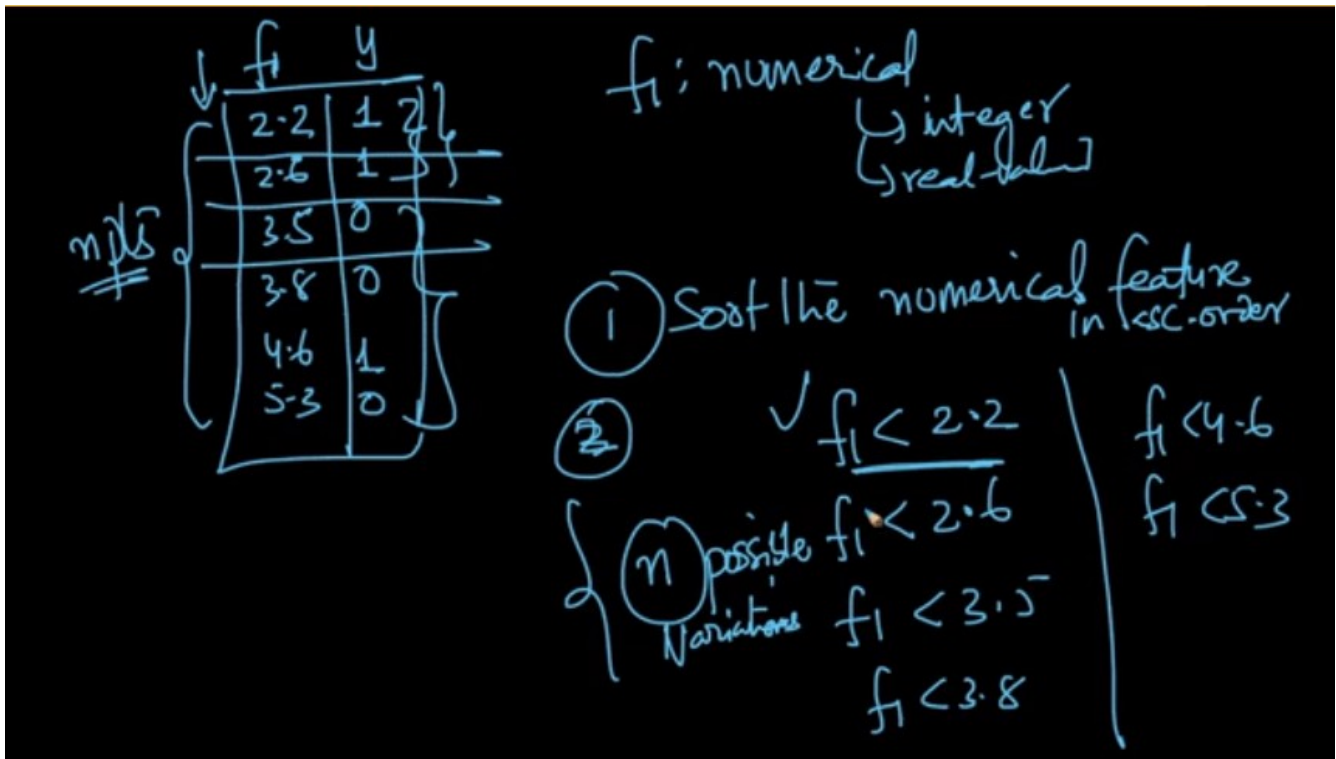 f1 y
2.2 1
2.6 1
3.5 0
3.8 0
4.6 1
5.3 0
n pts
f1: numerical
integer
real-valued
1 Sort the numerical feature
in asc. order
2
f1 < 2.2
n possible f1 < 2.6
Variations f1 < 3.5
f1 < 3.8
f1 < 4.6
f1 < 5.3